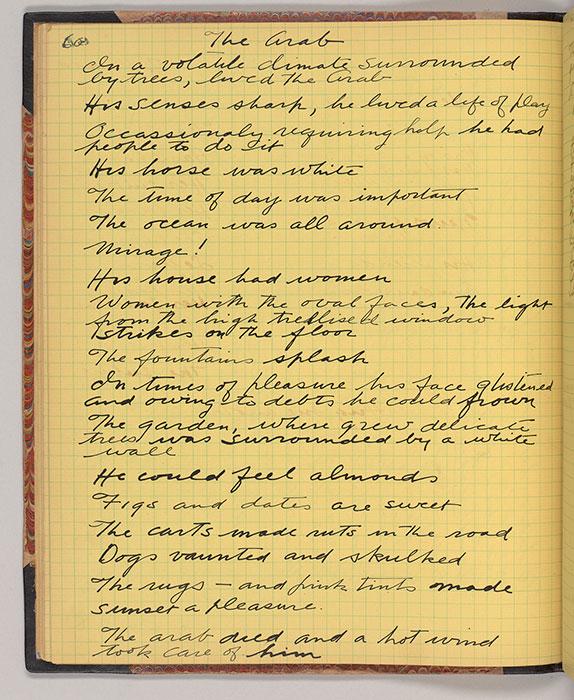 The Arab
In a volatile climate surrounded
by trees, lived The Arab
His senses sharp, he lived a life of play
Occassionaly requiring help he had
people to do it
His horse was white
The time of day was important
The ocean was all around
Mirage!
His house had women
Women with the oval faces, The light
from the high trellised window
strikes on the floor
The fountains splash
In times of pleasure his face glistened
and owing to debts he could frown
The garden, where grew delicate
trees was surrounded by a white
wall
He could feel almonds
Figs and dates are sweet
The carts made ruts in the road
Dogs vaunted and skulked
The rugs – and pink tints made
sunset a pleasure.
The arab died and a hot wind
took care of him